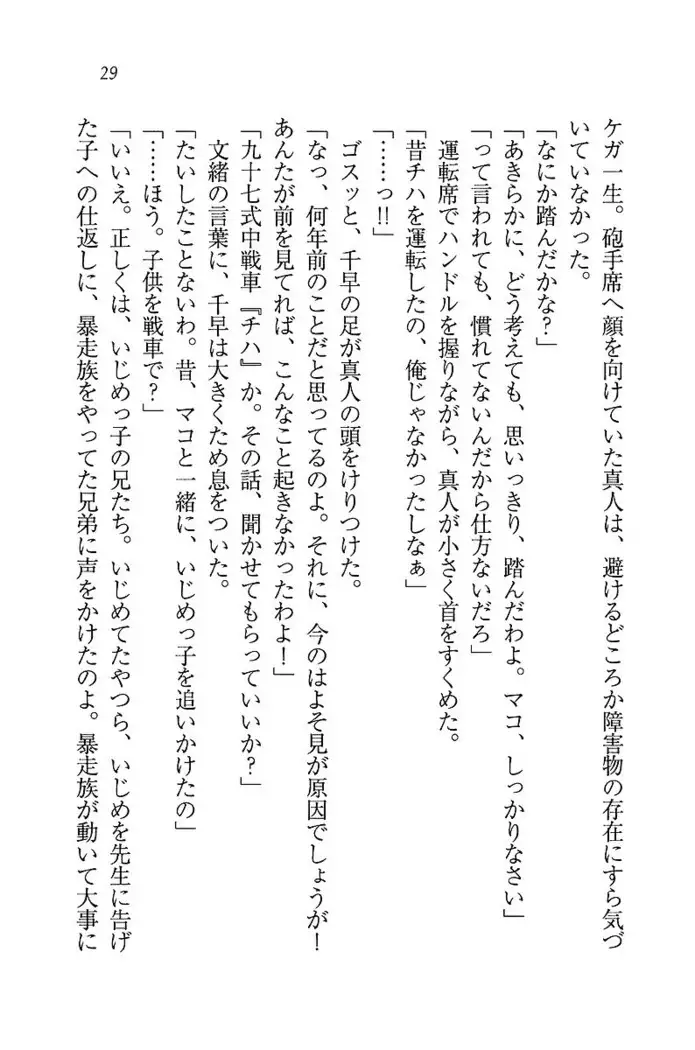 29
ケガ一生。砲手席へ顔を向けていた真人は、避けるどころか障害物の存在にすら気づ
いていなかった。
「なにか踏んだかな?」
「あきらかに、どう考えても、思いっきり、踏んだわよ。マコ、しっかりなさい」
「って言われても、慣れてないんだから仕方ないだろ」
運転席でハンドルを握りながら、真人が小さく首をすくめた。
「昔チハを運転したの、俺じゃなかったしなぁ」
「……っ!!」
ゴスッと、千早の足が真人の頭をけりつけた。
「なっ、何年前のことだと思ってるのよ。それに、今のはよそ見が原因でしょうが!
あんたが前を見てれば、こんなこと起きなかったわよ!」
「九十七式中戦車『チハ』か。その話、聞かせてもらっていいか?」
文緒の言葉に、千早は大きくため息をついた。
「たいしたことないわ。昔、マコと一緒に、いじめっ子を追いかけたの」
「……ほう。子供を戦車で?」
「いいえ。正しくは、いじめっ子の兄たち。いじめてたやつら、いじめを先生に告げ
た子への仕返しに、暴走族をやってた兄弟に声をかけたのよ。暴走族が動いて大事に